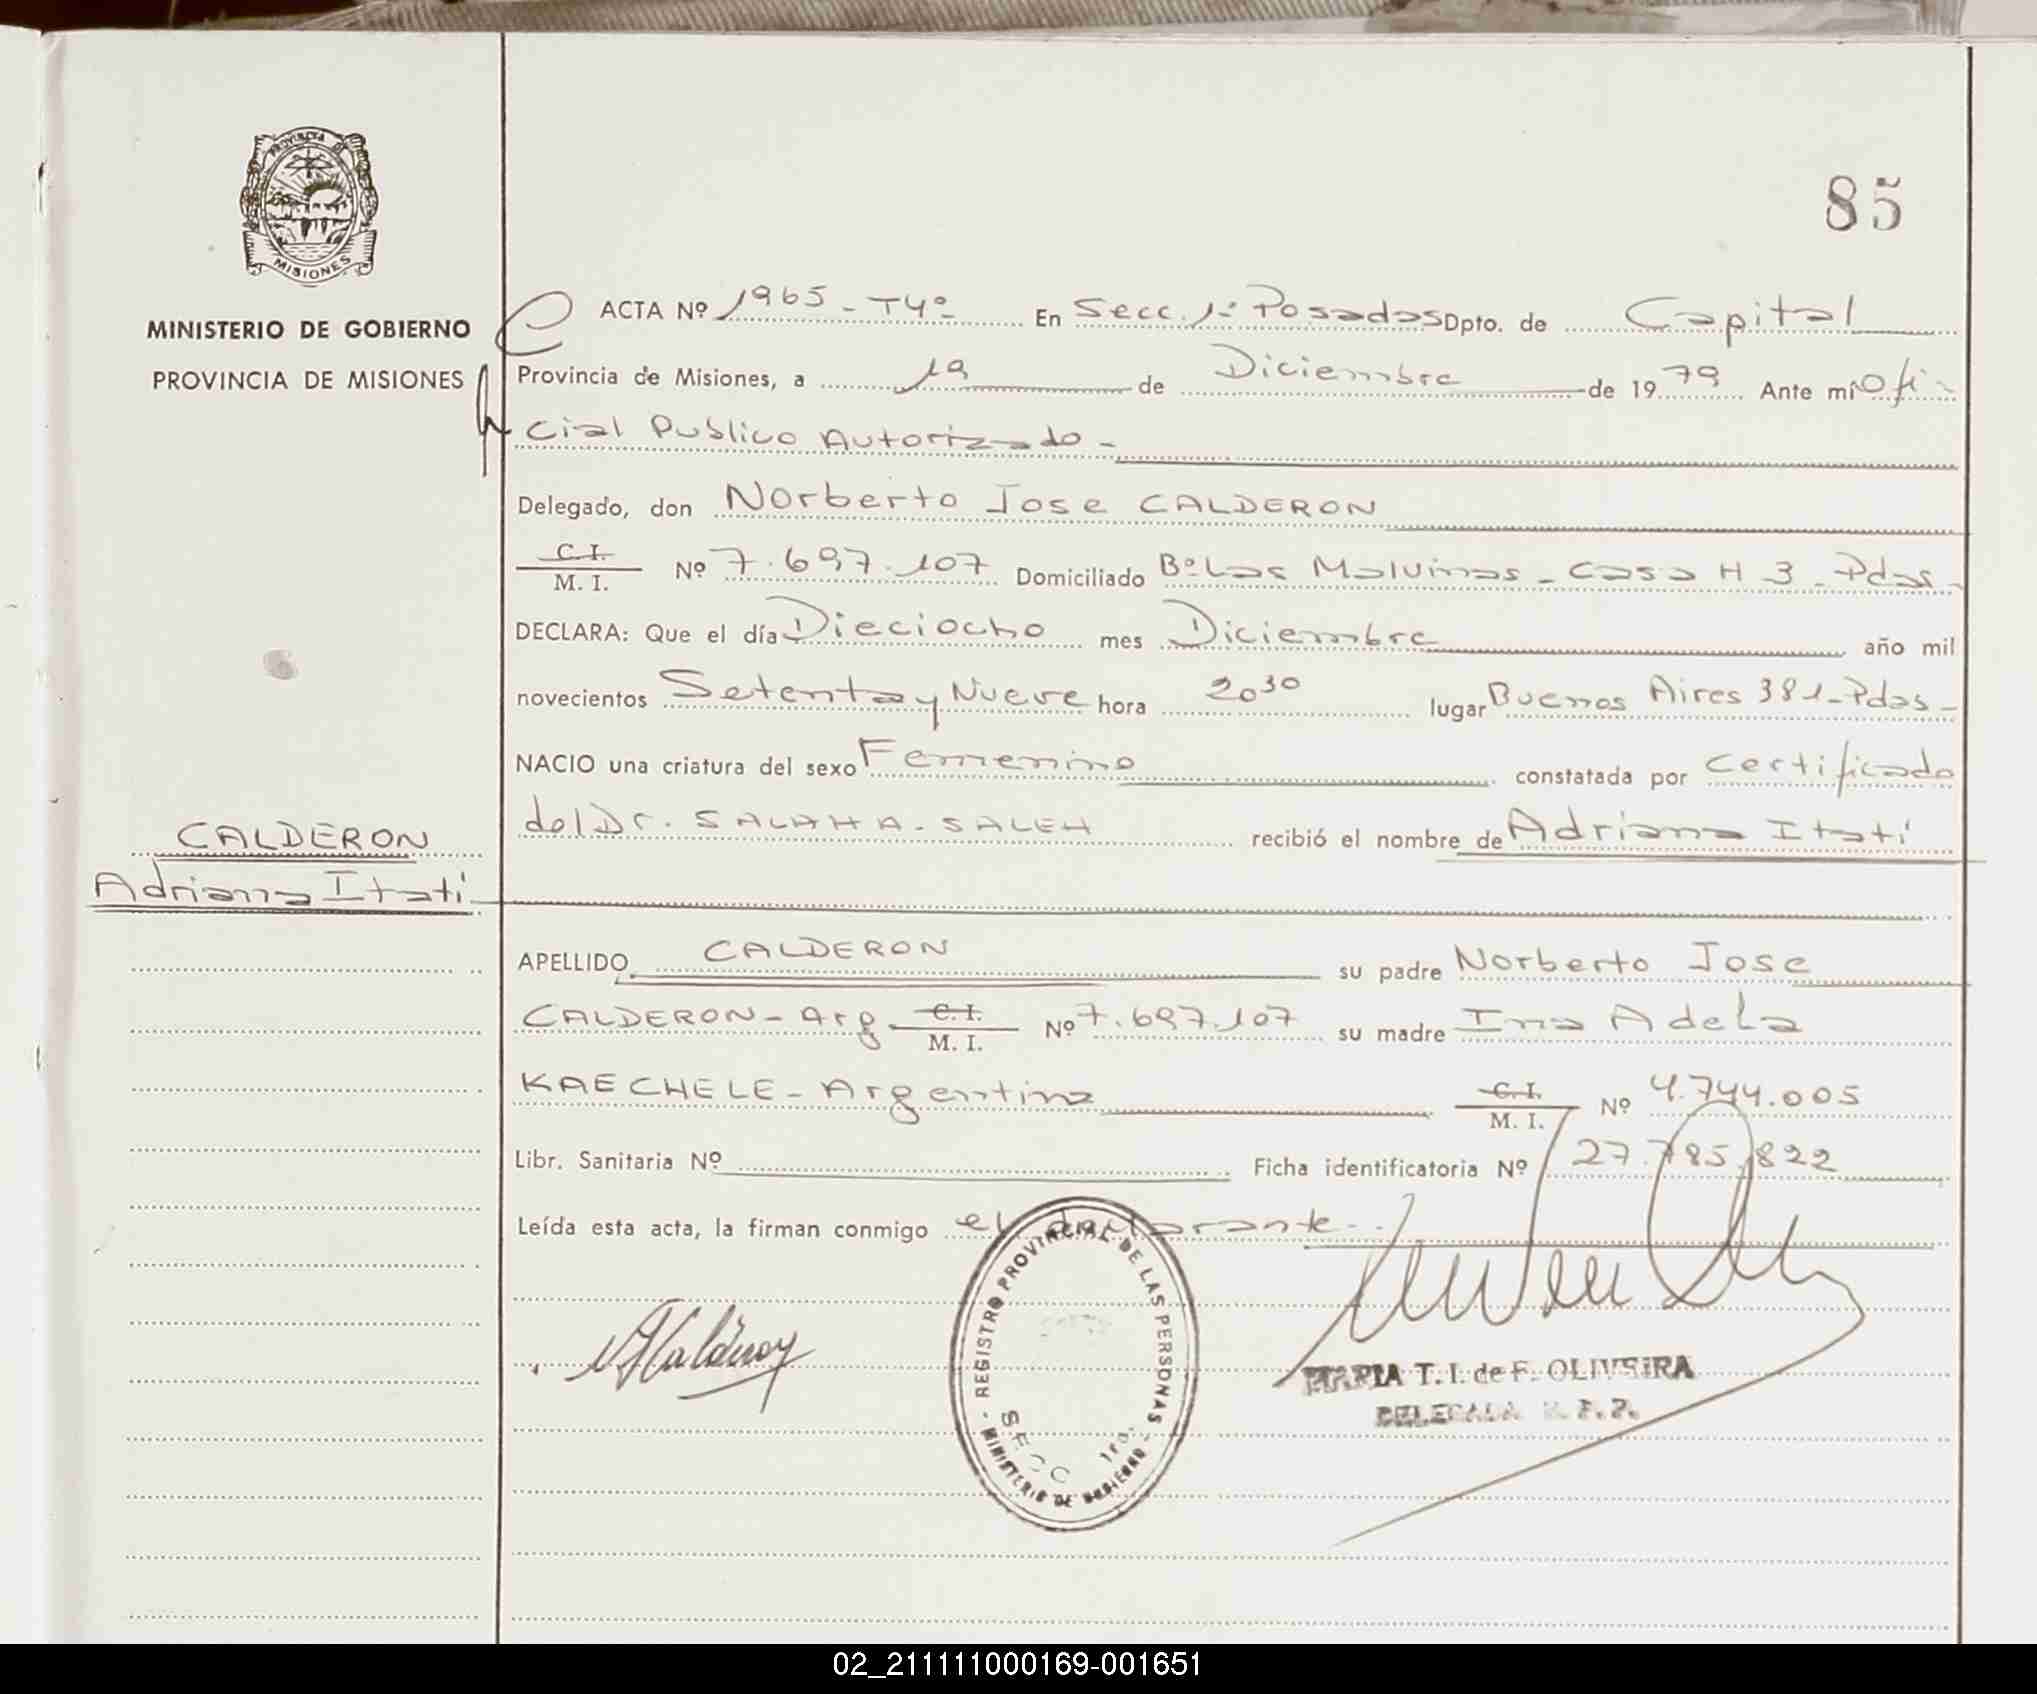 PROVINCIA DE
MISIONES
MINISTERIO DE GOBIERNO
PROVINCIA DE MISIONES
85
ACTA Nº 1965 - T4º En Secc. 1ª Posadas Dpto. de Capital
Provincia de Misiones, a 19 de Diciembre de 1979 Ante mi Ofi-
cial Publico Autorizado -
Delegado, don Norberto Jose CALDERON
C. I.
M. I. Nº 7.697.107 Domiciliado Bº Las Malvinas - Casa H 3 - Pdas -
DECLARA: Que el día Dieciocho mes Diciembre año mil
novecientos Setenta y Nueve hora 20 30 lugar Buenos Aires 381 - Pdas -
NACIO una criatura del sexo Femenino constatada por Certificado
del Dr. SALAHA - SALEH recibió el nombre de Adriana Itatí
CALDERON
Adriana Itatí
APELLIDO CALDERON su padre Norberto Jose
CALDERON - Arg C. I.
M. I. Nº 7.697.107 su madre Ina Adela
KAECHELE - Argentina C. I.
M. I. Nº 4.744.005
Libr. Sanitaria Nº Ficha identificatoria Nº 27.785.822
Leída esta acta, la firman conmigo el declarante -
REGISTRO PROVINCIAL DE LAS PERSONAS - MINISTERIO DE GOBIERNO -
SECC 1ra.
MARIA T. I. de F. OLIVEIRA
DELEGADA
02_211111000169-001651